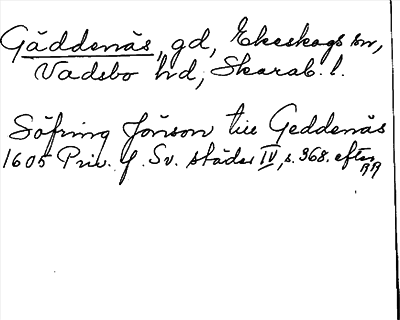 Gäddenäs, gd, Ekeskogs sn,
Vadsbo hd, Skarab. l.
Söfring Jönson till Geddenäs
1605 Priv. f. Sv. städer IV, s. 968. efter
RA